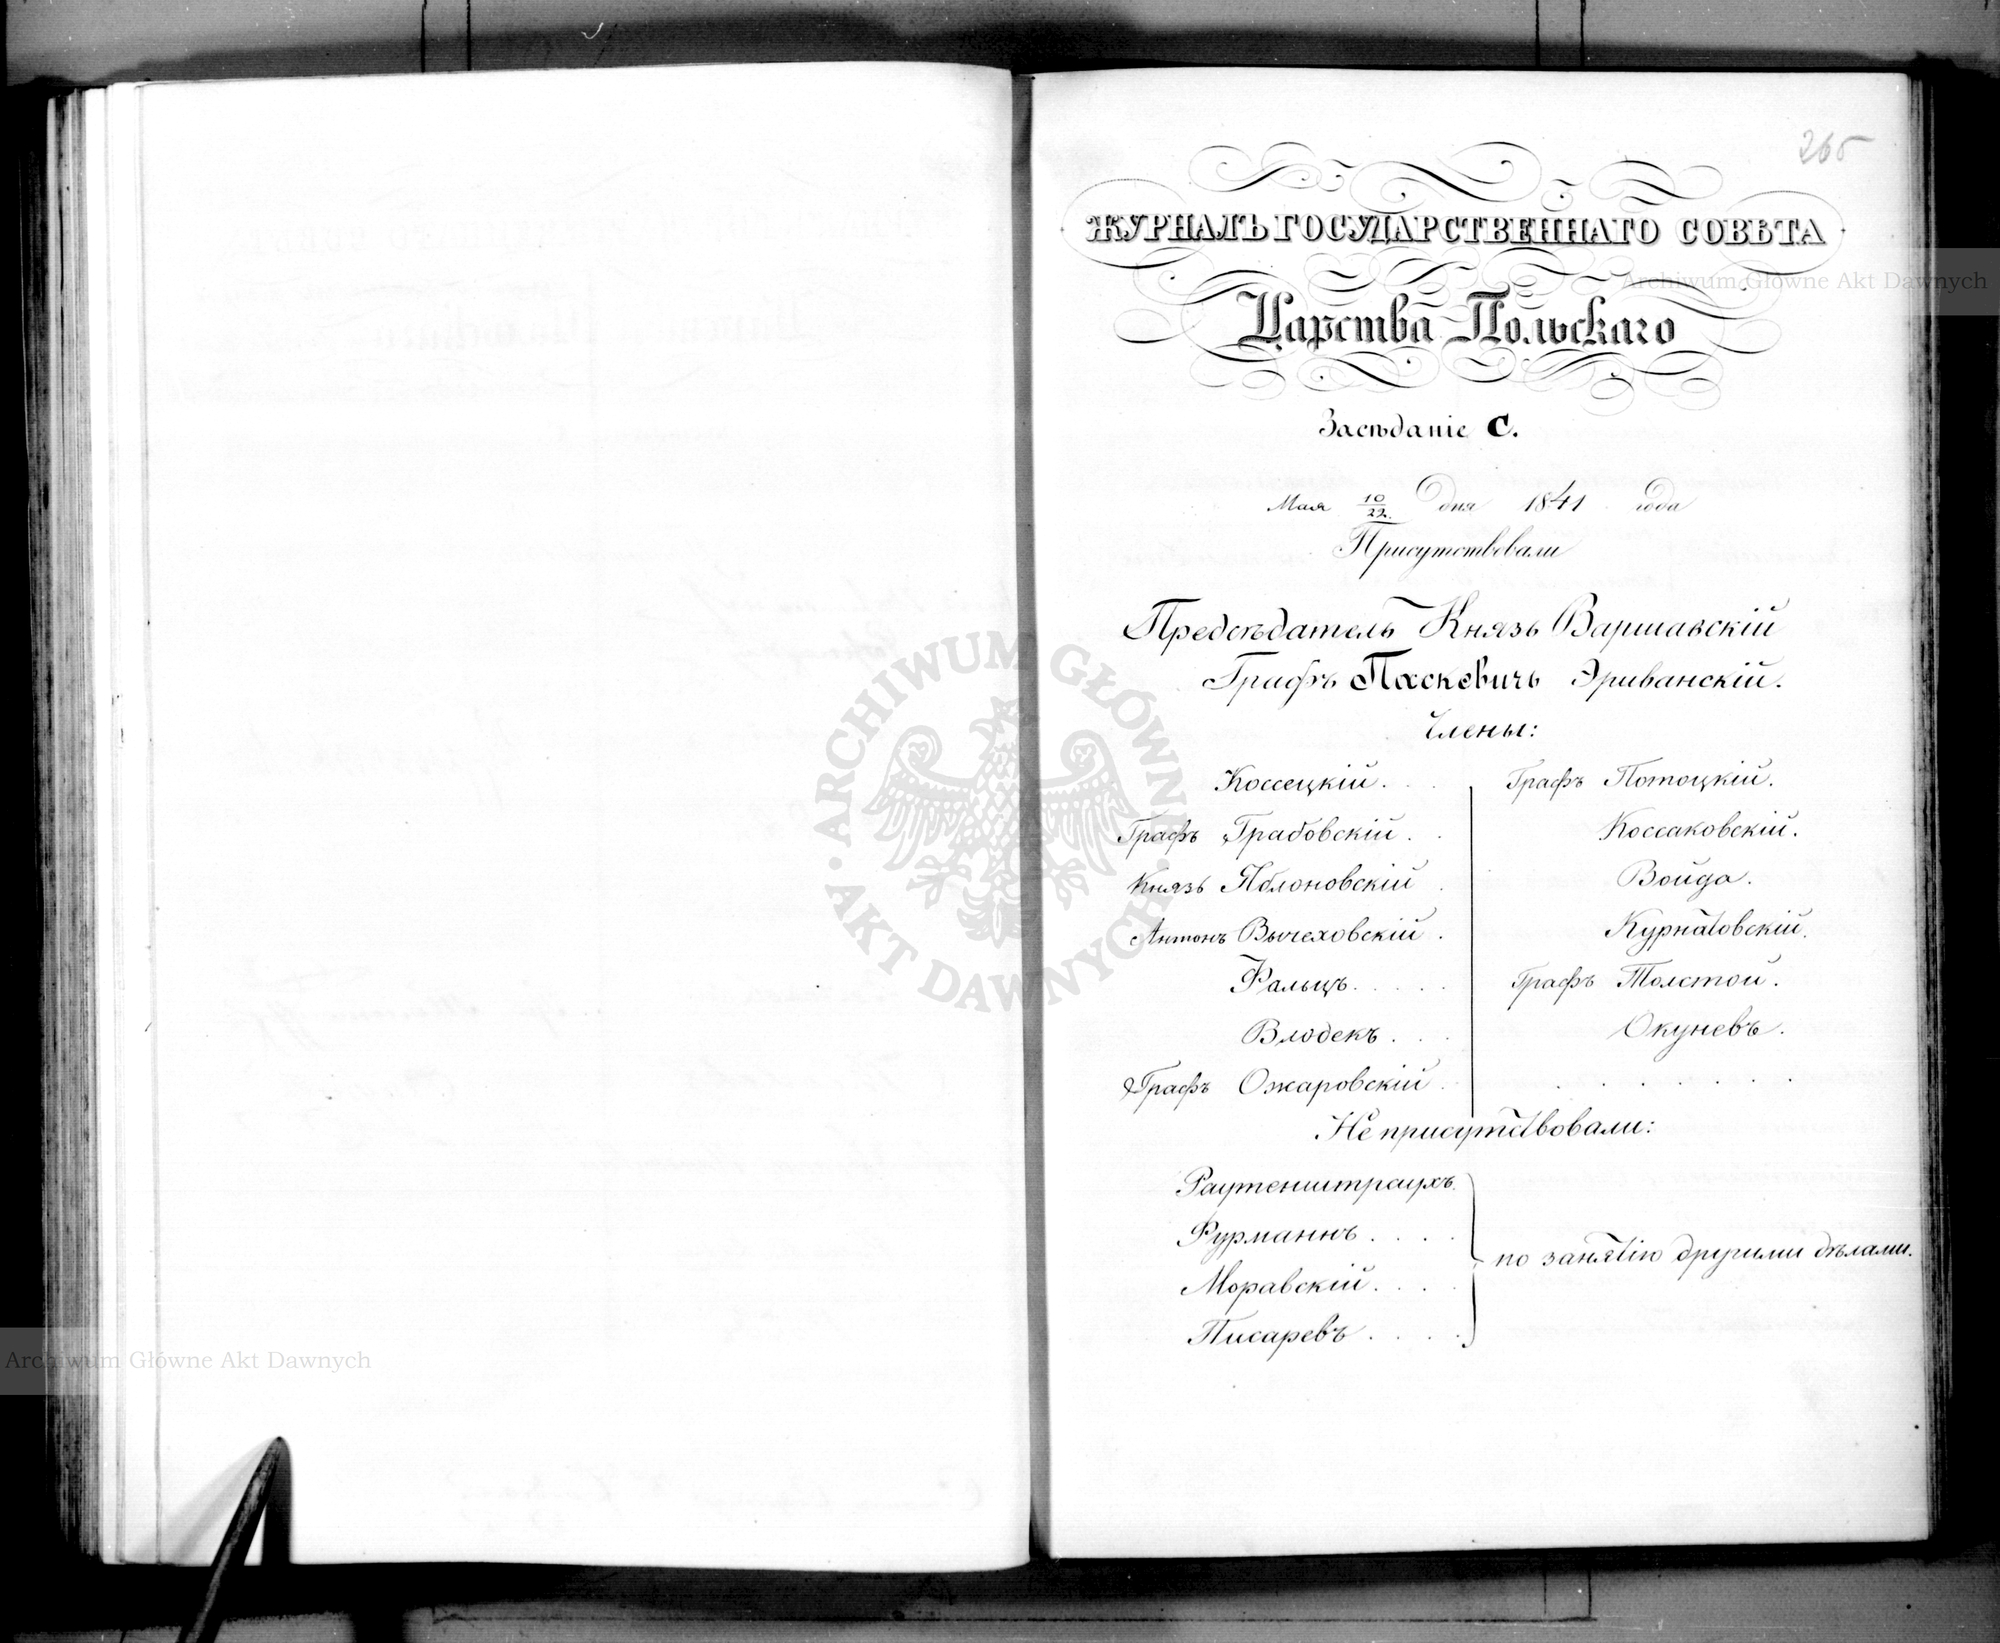 265
ЖУРНАЛЪ ГОСУДАРСТВЕННАГО СОВѢТА
Царства Польскаго
Засѣданіе C.
Мая 10/22. дня 1841 года
Присутствовали
Предсѣдатель Князь Варшавскій
Графъ Паскевичъ Эриванскій.
Члены:
Коссецкій.
Графъ Грабовскій.
Князь Яблоновскій
Антонъ Вычеховскій.
Фальцъ.
Влодекъ.
Графъ Ожаровскій.
Графъ Потоцкій.
Коссаковскій.
Войда.
Курнатовскій.
Графъ Толстой.
Окуневъ.
Не присутствовали:
Раутенштраухъ.
Фурманнъ.
Моравскій.
Писаревъ.
по занятію другими дѣлами.
Archiwum Główne Akt Dawnych
ARCHIWUM GŁÓWNE AKT DAWNYCH
Archiwum Główne Akt Dawnych